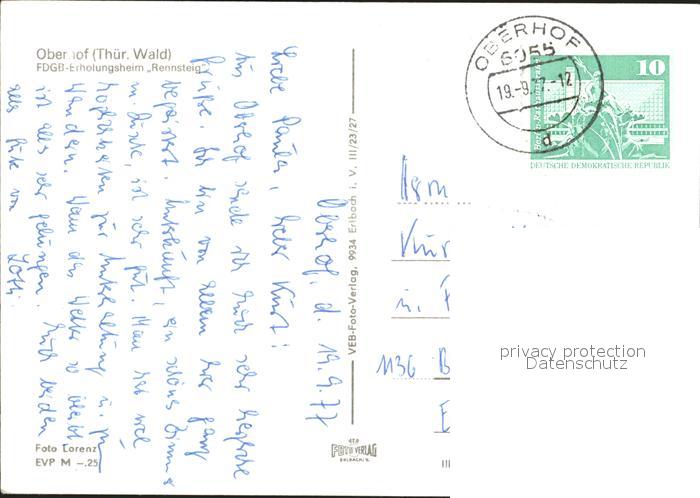 Oberhof (Thür. Wald)
FDGB-Erholungsheim „Rennsteig"
Oberhof, d. 19.9.77
Liebe Paula, lieber Kurt!
Aus Oberhof sende ich Euch sehr herzliche
Grüße. Ich bin von allem hier ganz
begeistert. Unterkunft, ein schönes Zimmer
m. Dusche, ist sehr gut. Man hat viel
Möglichkeiten zur Unterhaltung u. zum
Wandern. Wenn das Wetter so bleibt
ist alles sehr gelungen. Euch beiden
alles Gute von
Lotti
Foto Lorenz
EVP M –.25
VEB-Foto-Verlag, 9934 Erlbach i. V. III/23/27
FOTO VERLAG
ERLBACH/V.
OBERHOF
6055
19.-9.77.-12
d
10
DEUTSCHE DEMOKRATISCHE REPUBLIK
Kur
u.
1136 B
privacy protection
Datenschutz